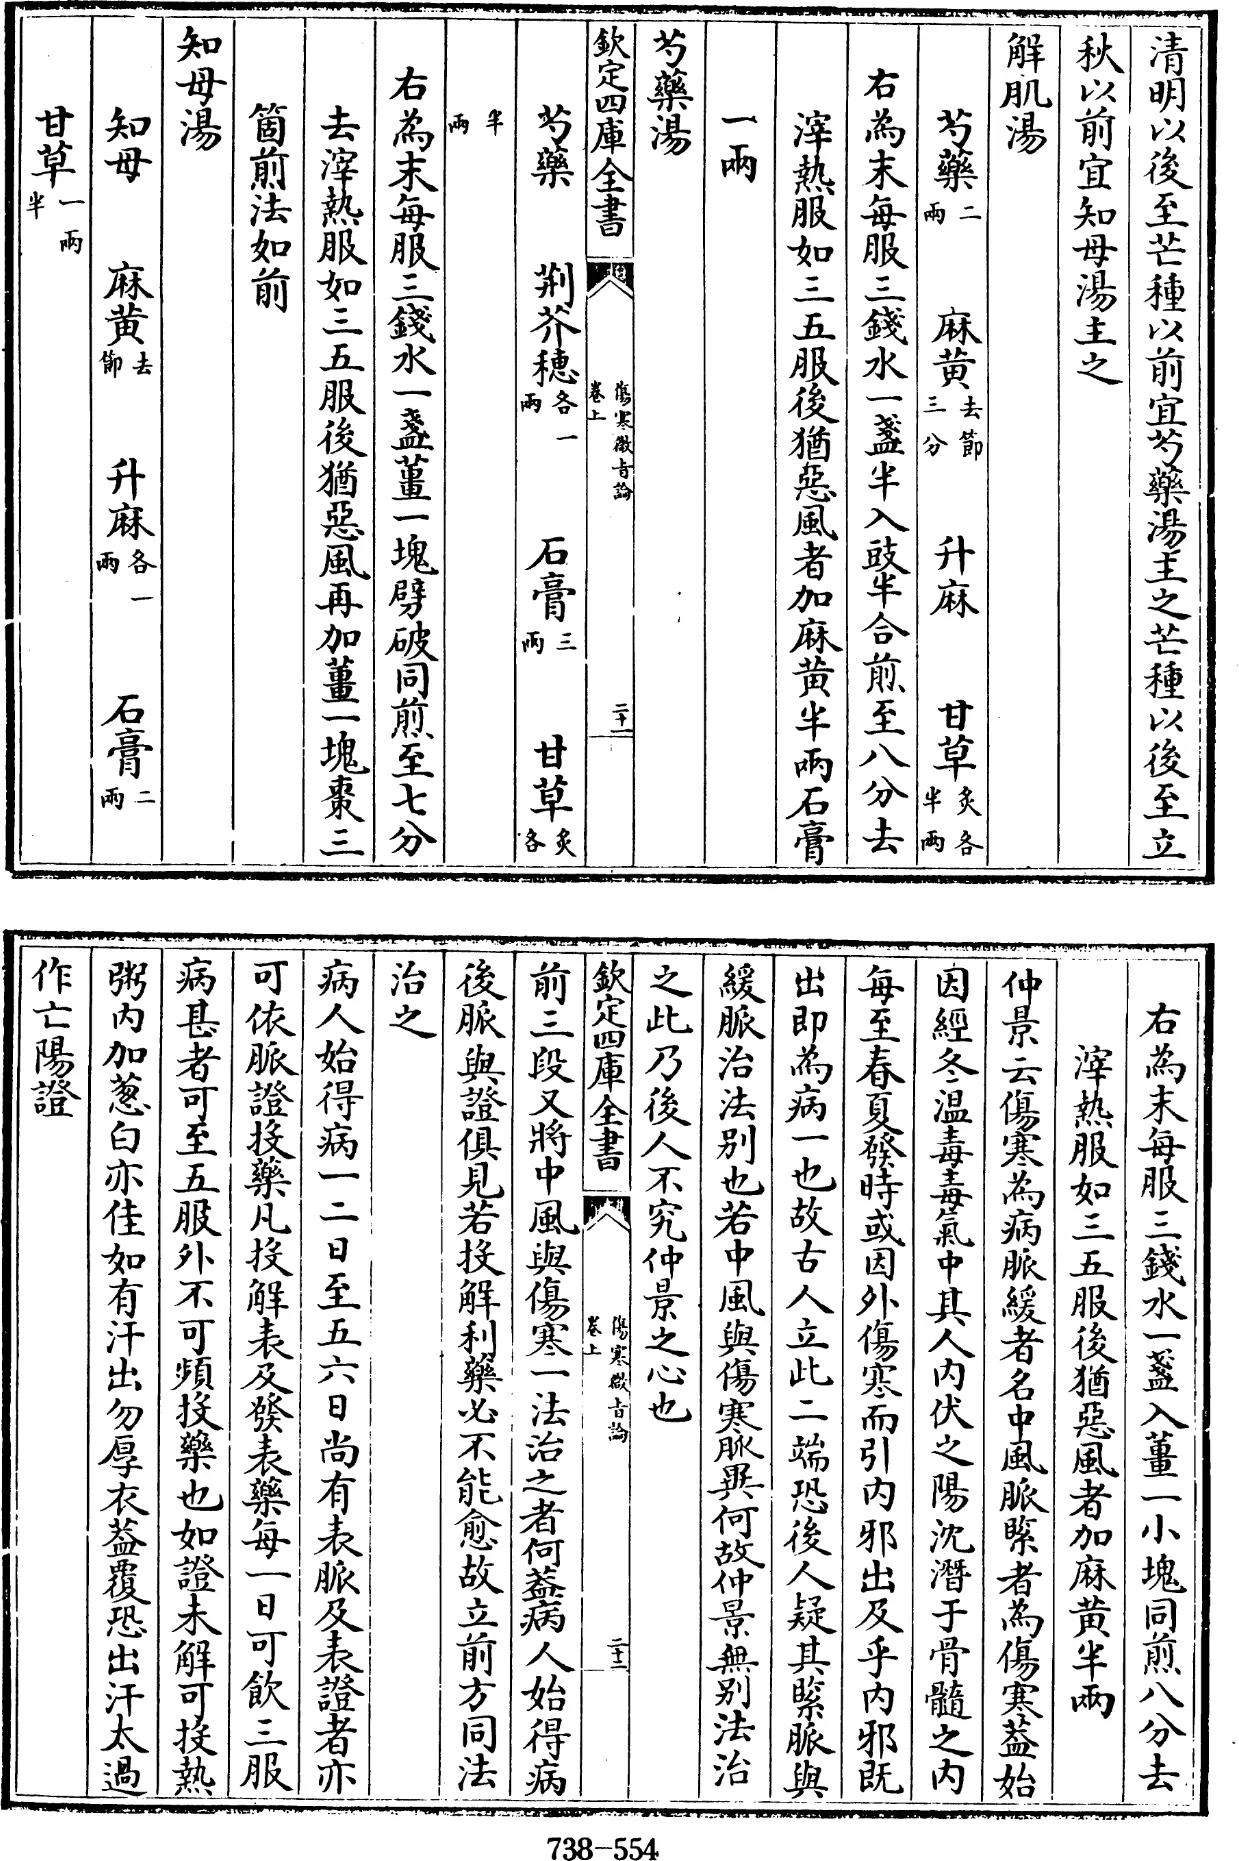 清明以後至芒種以前宜芍藥湯主之芒種以後至立
秋以前宜知母湯主之
解肌湯
芍藥二兩 麻黄去節三分 升麻 甘草炙各半兩
右為末每服三錢水一盞半入豉半合煎至八分去
滓熱服如三五服後猶惡風者加麻黄半兩石膏
一兩
芍藥湯
欽定四庫全書 傷寒微旨論卷上 二十一
芍藥 荆芥穗各一兩 石膏三兩 甘草炙各
半兩
右為末每服三錢水一盞薑一塊劈破同煎至七分
去滓熱服如三五服後猶惡風再加薑一塊棗三
箇煎法如前
知母湯
知母 麻黄去節 升麻各一兩 石膏二兩
甘草一兩半
右為末每服三錢水一盞入薑一小塊同煎八分去
滓熱服如三五服後猶惡風者加麻黄半兩
仲景云傷寒為病脈緩者名中風脈緊者為傷寒葢始
因經冬温毒毒氣中其人内伏之陽沈潛于骨髓之内
每至春夏發時或因外傷寒而引内邪出及乎内邪既
出即為病一也故古人立此二端恐後人疑其緊脈與
緩脈治法别也若中風與傷寒脈異何故仲景無别法治
之此乃後人不究仲景之心也
欽定四庫全書 傷寒微旨論卷上 二十二
前三段又將中風與傷寒一法治之者何葢病人始得病
後脈與證俱見若投解利藥必不能愈故立前方同法
治之
病人始得病一二日至五六日尚有表脈及表證者亦
可依脈證投藥凡投解表及發表藥每一日可飲三服
病甚者可至五服外不可頻投藥也如證未解可投熱
粥内加葱白亦佳如有汗出勿厚衣葢覆恐出汗太過
作亡陽證
738-554